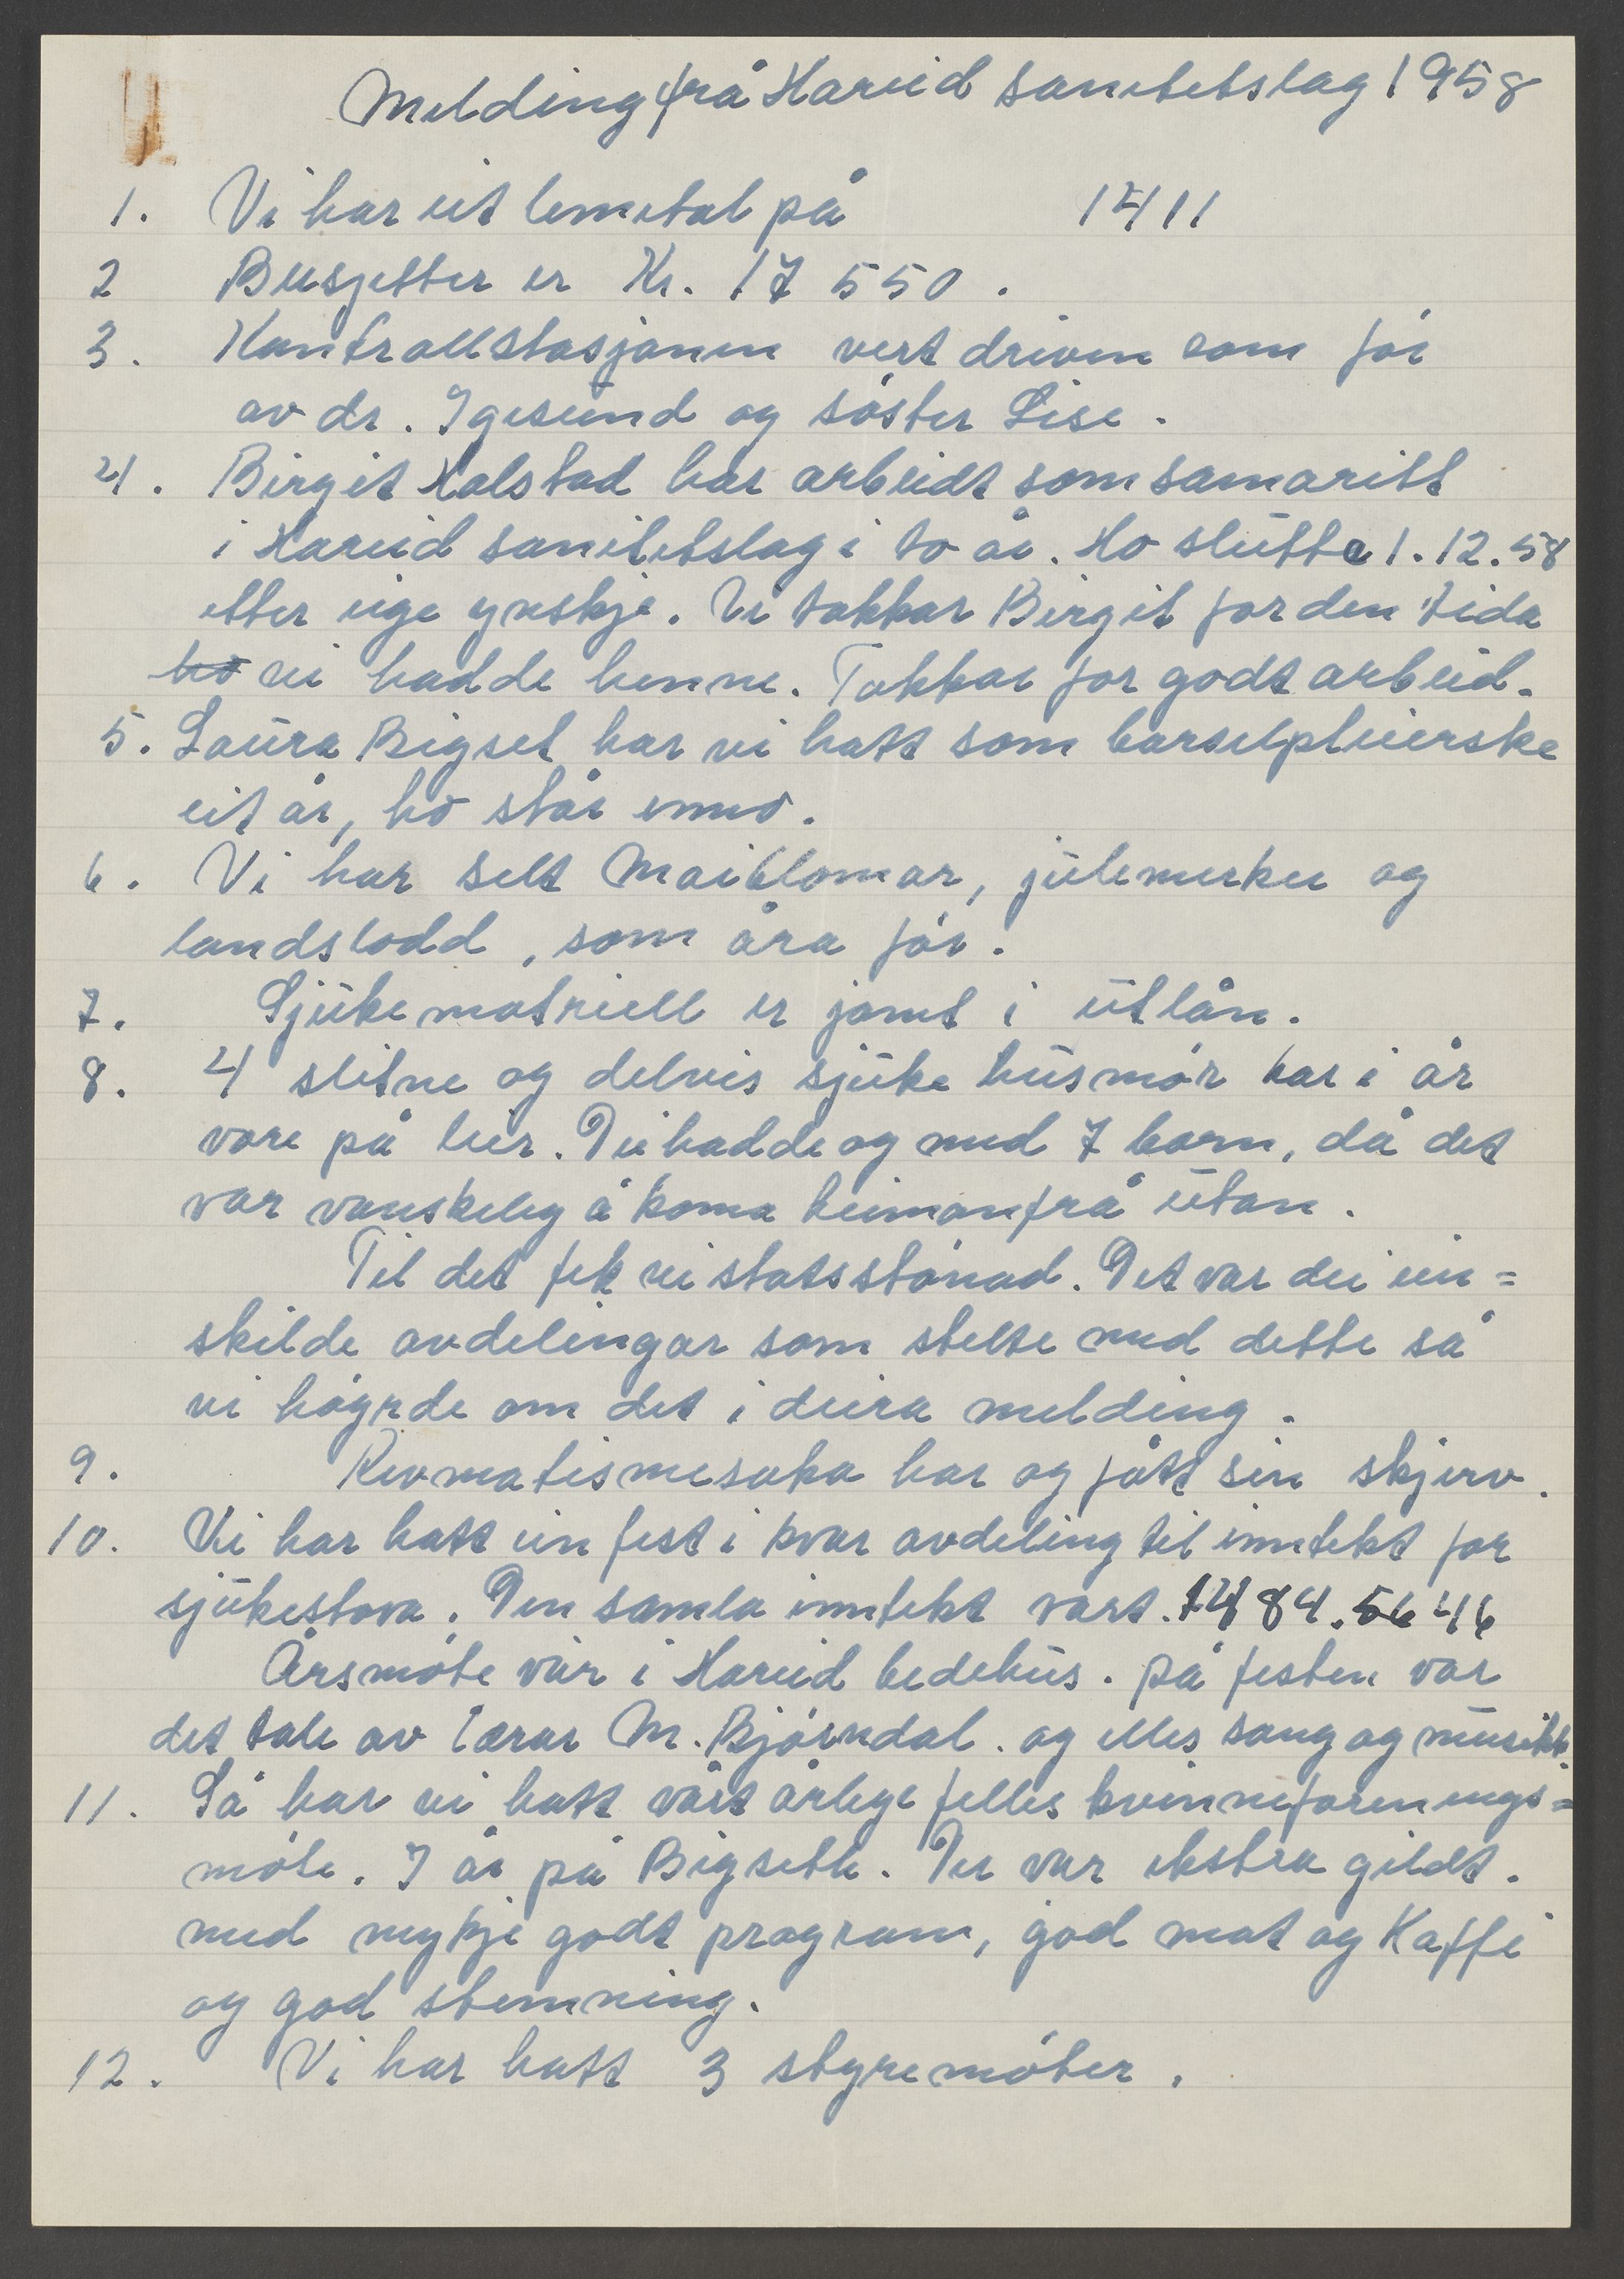 Melding frå Hareid sanitetslag 1958
1. Vi har eit lemetal på 1411
2 Busjetter er Kr. 17 550.
3. Kontrollstasjonen vert driven som før
av dr. Igesund og søster Lise.
4. Birgit Kalstad har arbeidt som samaritt
i Hareid sanitetslag i to år. Ho slutta 1.12.58
etter eige ynskje. Vi takkar Birgit for den tida
ho vi hadde henne. Takkar for godt arbeid.
5. Laura Bigset har vi hatt som barselpleierske
eit år, ho står enno.
6. Vi har selt Maiblomar, julemerker og
landslodd, som åra før.
7. Sjukematriell er jamt i utlån.
8. 4 slitne og delvis sjuke husmør har i år
vore på leir. Dei hadde og med 7 born, då det
var vanskeleg å koma heimanfrå utan.
Til det fek vi statsstønad. Det var dei ein=
skilde avdelingar som stelte med dette så
vi høyrde om det i deira melding.
9. Revmatismesaka har og fått sin skjerv.
10. Vi har hatt ein fest i kvar avdeling til inntekt for
sjukestova. Den samla inntekt vart. 1484.56 46
Årsmøte vår i Hareid bedehus. på festen var
det tale av lærar M. Bjørndal. og elles sang og musikk.
11. Så har vi hatt vårt årlege felles kvinneforenings=
møte. I år på Bigsete. Der var ekstra gildt.
med mykje godt program, god mat og Kaffi
og god stemning.
12. Vi har hatt 3 styremøter.